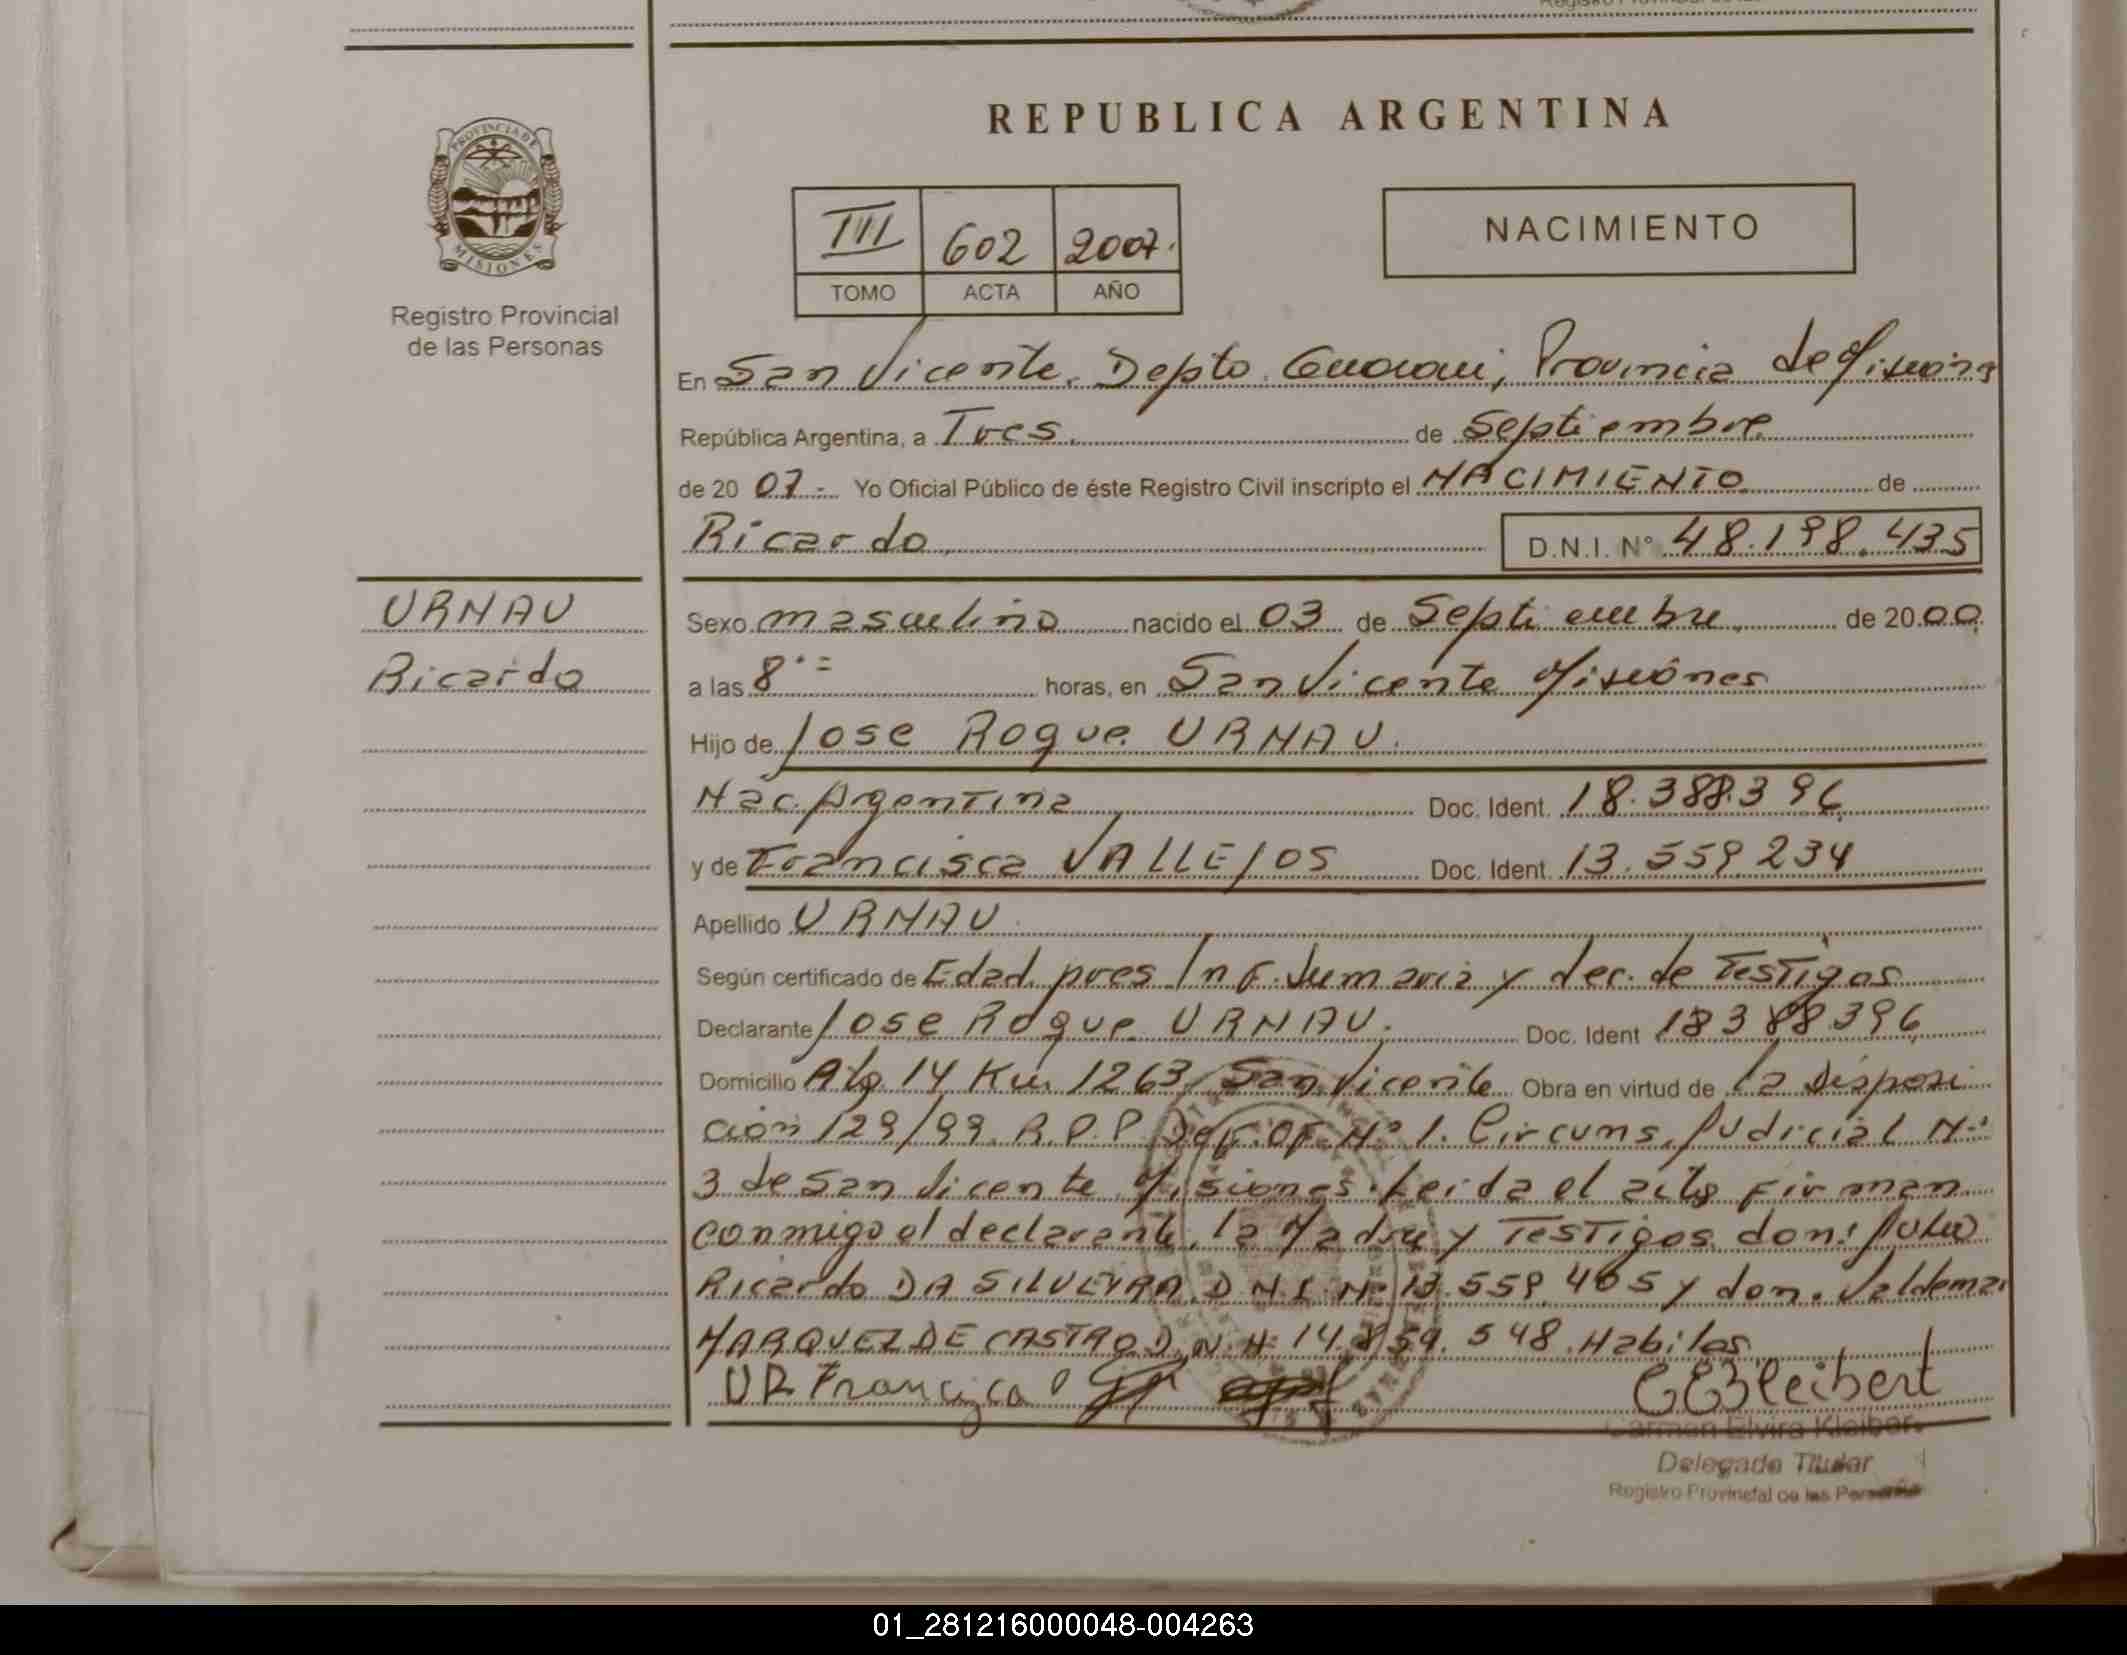 REPUBLICA ARGENTINA
PROVINCIA DE MISIONES
Registro Provincial
de las Personas
III 602 2007.
TOMO ACTA AÑO
NACIMIENTO
En San Vicente. Depto. Guarani, Provincia de Misiones
República Argentina, a Tres. de Septiembre
de 20 07.- Yo Oficial Público de éste Registro Civil inscripto el NACIMIENTO de
Ricardo D.N.I. Nº 48.198.435
URNAU
Ricardo
Sexo masculino nacido el 03 de Septiembre. de 20 00.
a las 8.= horas, en San Vicente Misiones
Hijo de Jose Roque URNAU.
Nac. Argentina Doc. Ident. 18.388.396
y de Francisca VALLEJOS Doc. Ident. 13.559.234
Apellido URNAU
Según certificado de Edad. pres Inf. Sumaria y dec. de Testigos
Declarante Jose Roque URNAU. Doc. Ident 18388396
Domicilio Alg. 14 Km. 1263 San Vicente Obra en virtud de la Disposi
cion 129/99. R.P.P. Def. OF. Nº 1. Circuns. Judicial N.º
3 de San Vicente Misiones. Leida el acta firman
conmigo el declarante, la Madre y Testigos don: Julio
Ricardo DA SILVEYRA. D.N.I. Nº 13.559.405 y don. Valdemar
MARQUEZ DE CASTRO D.N. Nº 14.859.548. Habiles
UR Francizca
CEKleibert
Carmen Elvira Kleiber
Delegada Titular
Registro Provincial de las Personas
01_281216000048-004263